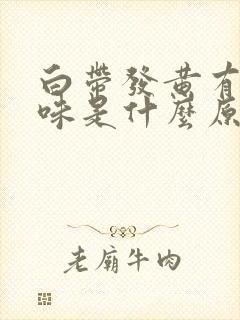 白帶發黄有
味是什麼原
老廟牛肉